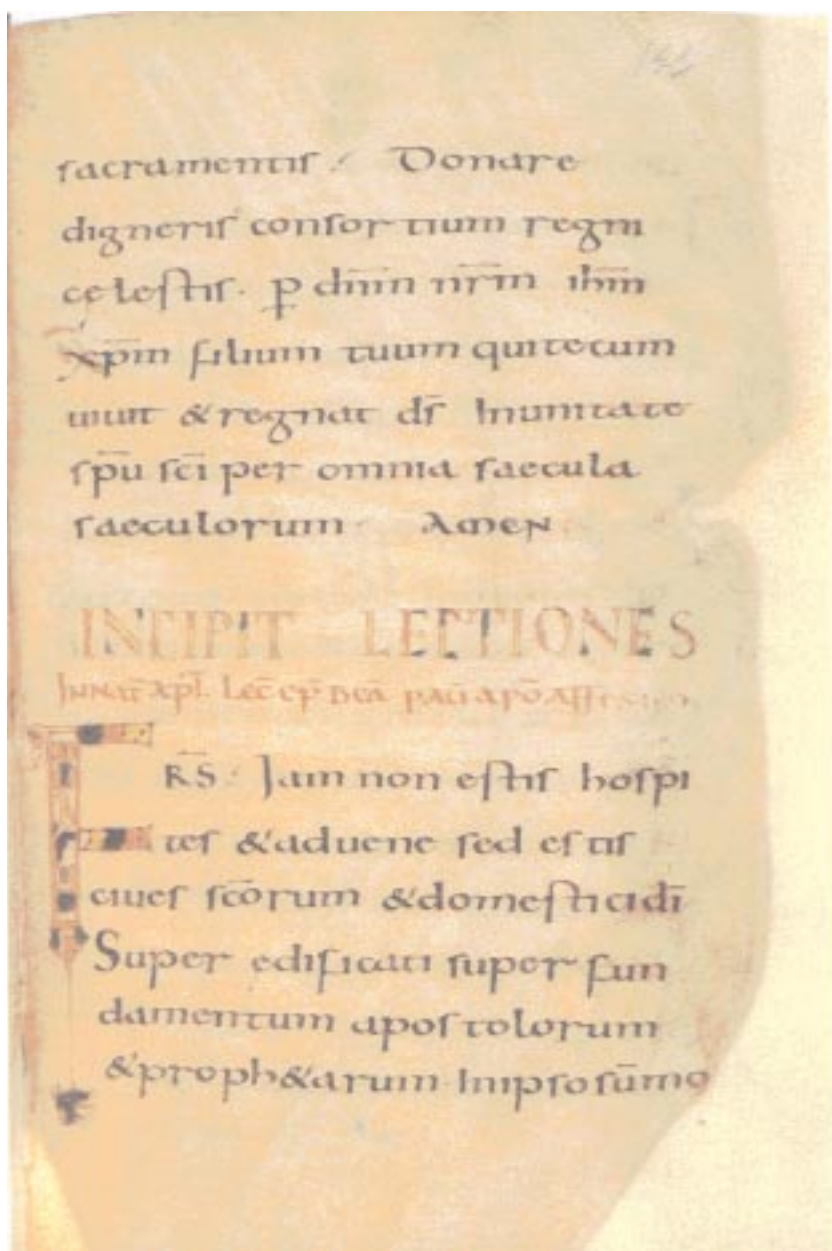 sacramentis. Donare
digneris consortium regni
celestis. p̄ dn̄m nr̄m ihm̄
xp̄m filium tuum qui tecum
uiuit & regnat ds̄ In unitate
sp̄u sc̄i per omnia saecula
saeculorum. AMEN
INCIPIT LECTIONES
IN NAT̄ APL̄. LEC̄ EP̄ BEA PAU APO AD
FRS̄. Iam non estis hospi
tes & aduene sed estis
ciues sc̄orum & domestici dī
Super edificati super fun
damentum apostolorum
& proph&arum. In ipso sūmo